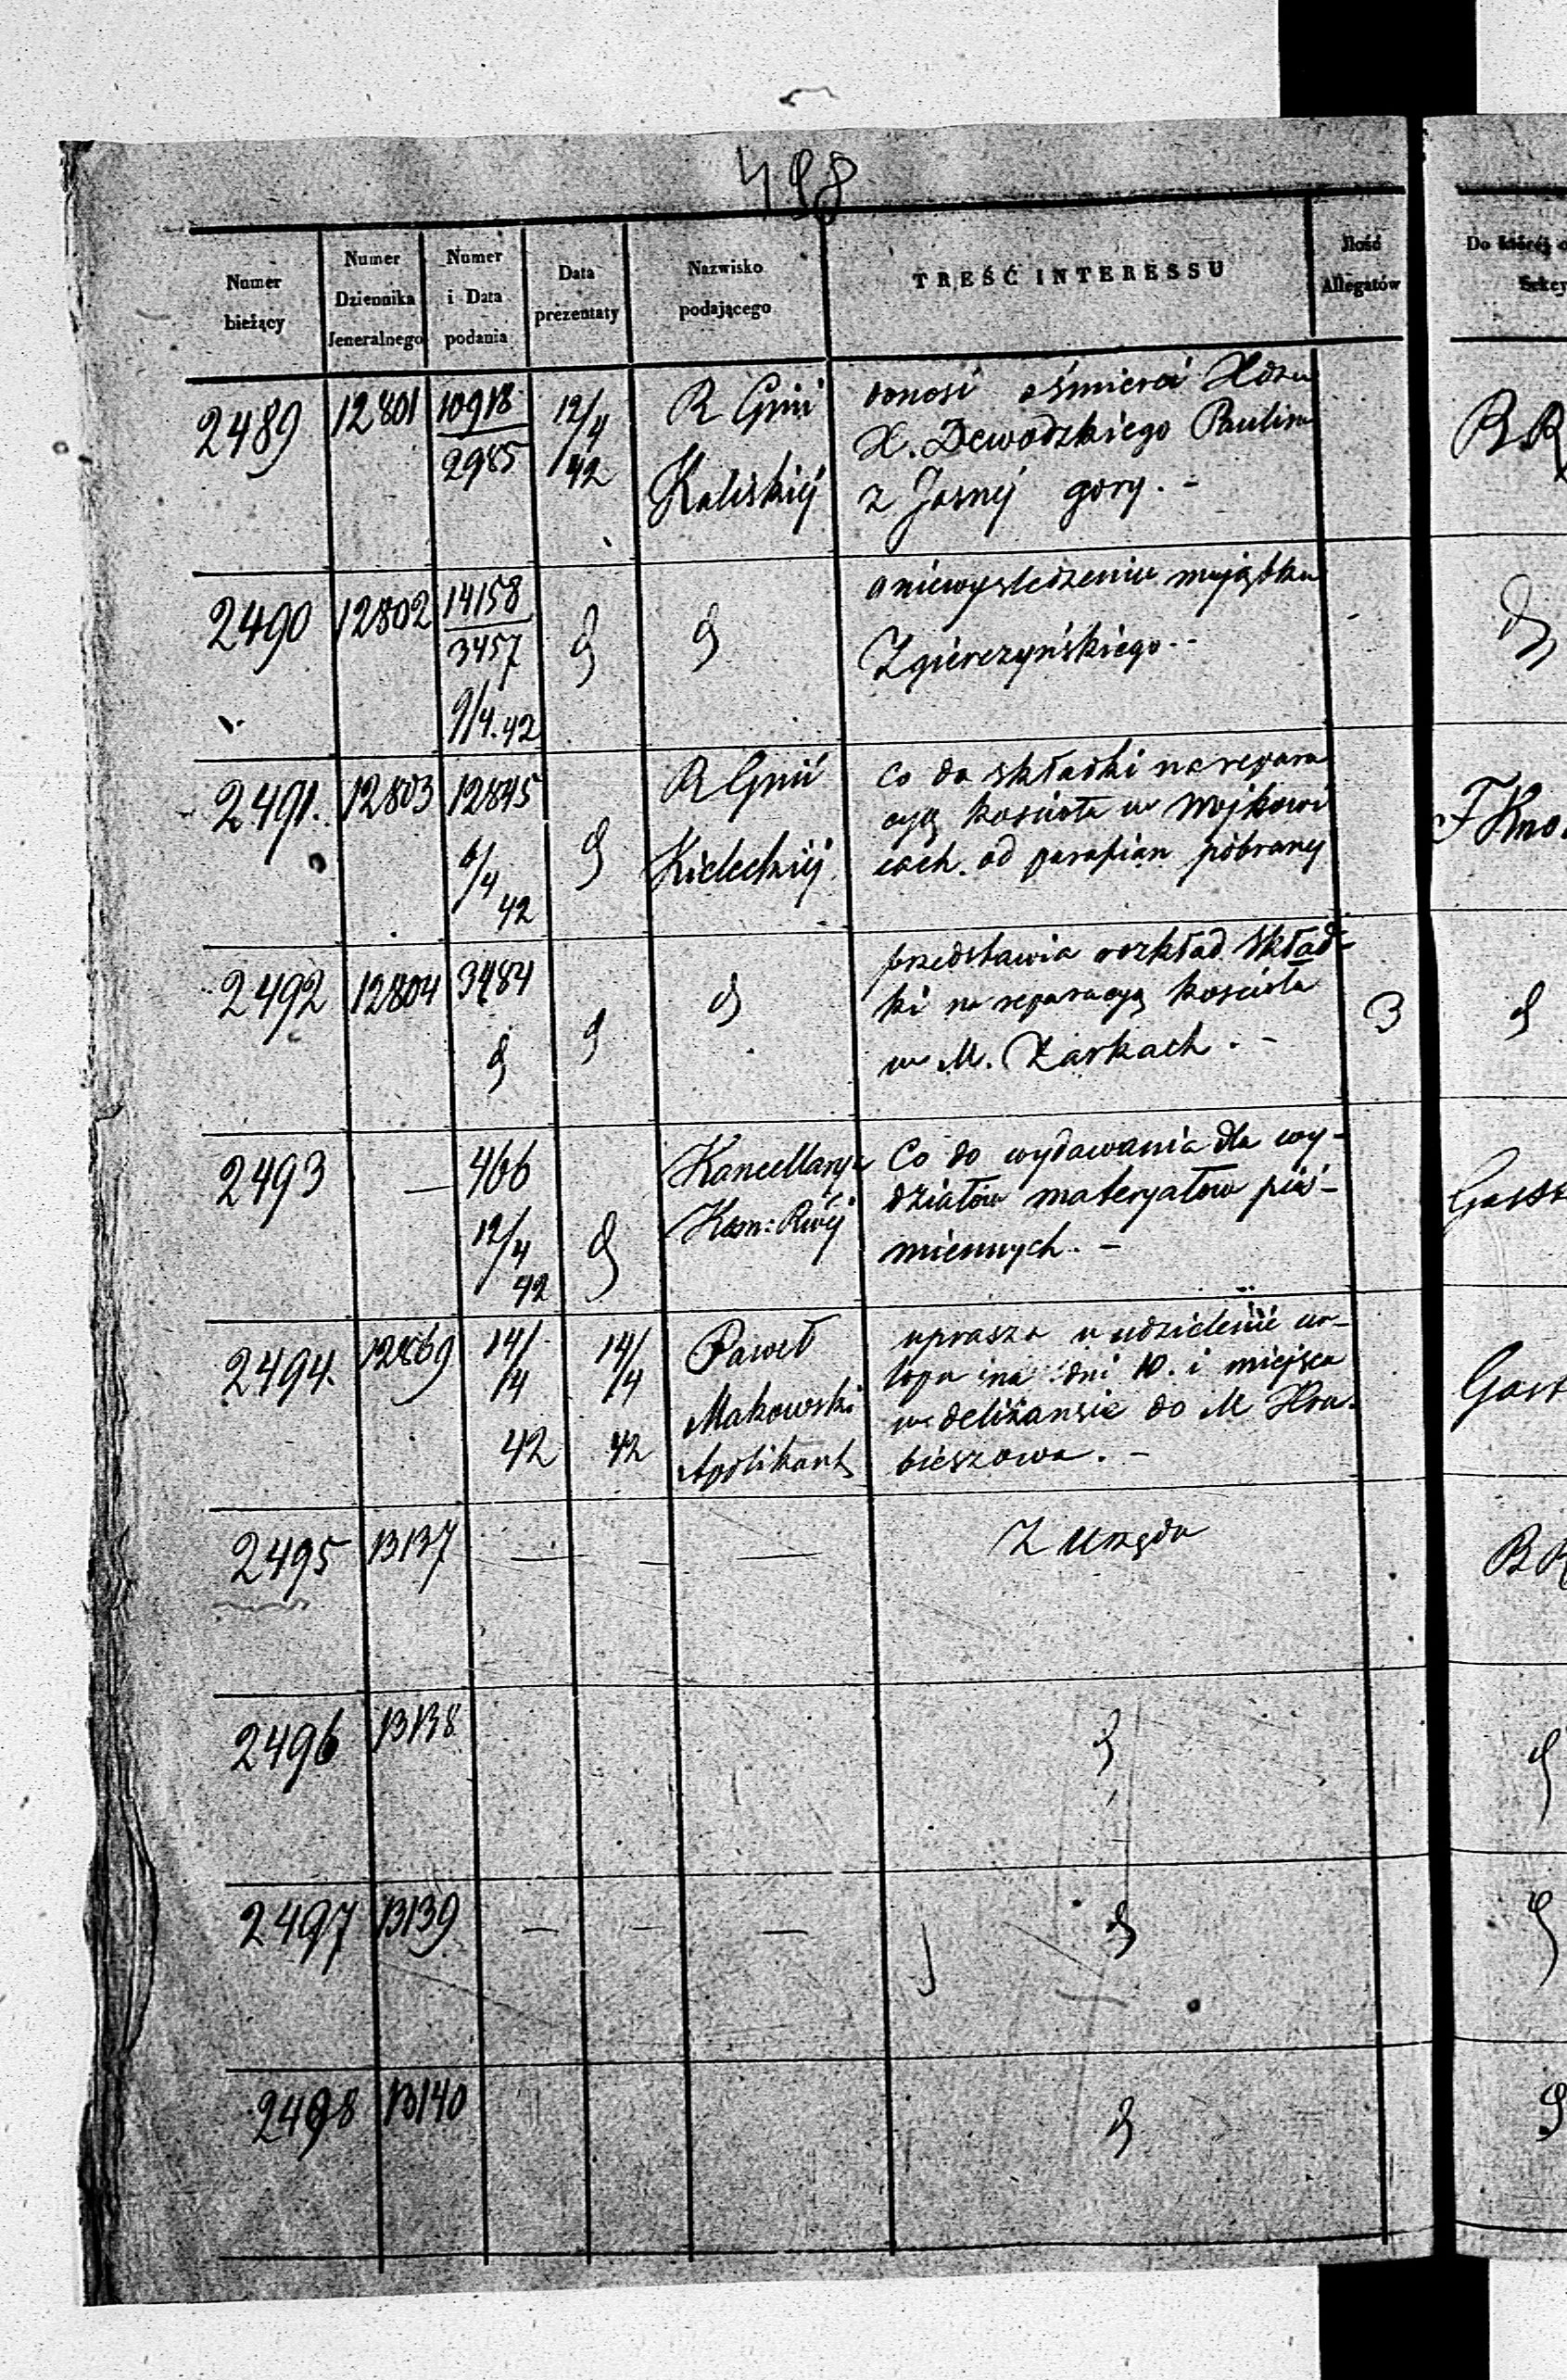 498
Numer
bieżący
Numer
Dziennika
Jeneralnego
Numer
i Data
podania
Data
prezentaty
Nazwisko
podającego
TREŚĆ INTERESSU
Ilość
Allegatów
Do któréj
2489
12801
10918
2985
12/4
42
R Gnii
Kaliskiéj
donosi o śmierci Xdza
X. Dewodzkiego Paulina
z Jasnéj gory. -
2490
12802
14158
3457
9/4.42
d
d
o niewysledzeniu majątku
Zgierczyńskiego. -
d
2491.
12803
12845
6/4
42
d
R Gnii
Kieleckiéj
co do składki na repara
cyą kościoła w Wojkowi
cach. od parafian pobranéj
2492
12804
3484
d
d
d
przedstawia rozkład skład-
ki na reparacyą kościoła
w M. Żarkach. -
3
d
2493
—
466
12/4
42
d
Kancellarya
Kom: Rwéj
Co do wydawania dla wy-
działów materyałów piś-
miennych. -
2494.
12869
14/4
42
14/4
42
Paweł
Makowski
Aplikant
uprasza o udzielenie ur-
lopu na dni 10. i miejsca
w deliżansie do M Hru-
bieszowa. -
2495
13137
— — —
Z Urzędu
2496
13138
d
d
2497
13139
— — —
d
d
2498
13140
d
d